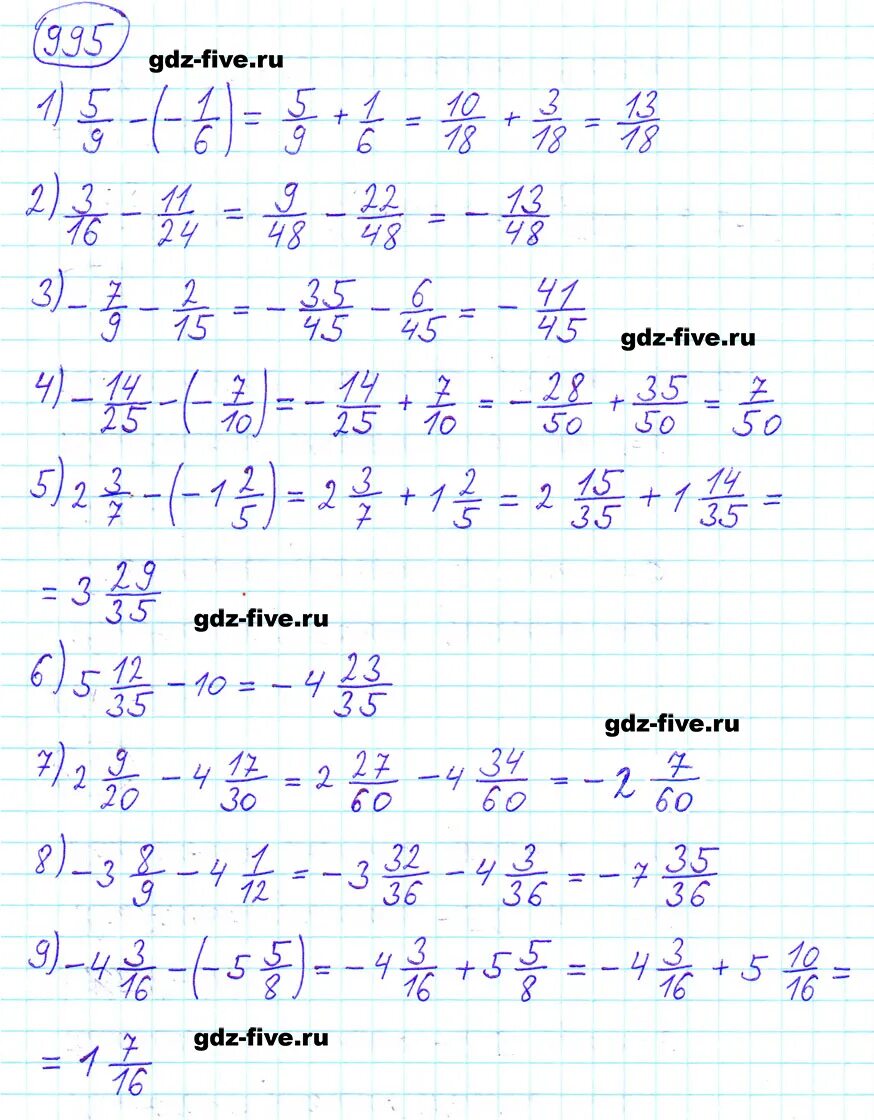 995
gdz-five.ru
1) 5/9 - (-1/6) = 5/9 + 1/6 = 10/18 + 3/18 = 13/18
2) 3/16 - 11/24 = 9/48 - 22/48 = -13/48
3) -7/9 - 2/15 = -35/45 - 6/45 = -41/45
gdz-five.ru
4) -14/25 - (-7/10) = -14/25 + 7/10 = -28/50 + 35/50 = 7/50
5) 2 3/7 - (-1 2/5) = 2 3/7 + 1 2/5 = 2 15/35 + 1 14/35 =
= 3 29/35
gdz-five.ru
6) 5 12/35 - 10 = -4 23/35
gdz-five.ru
7) 2 9/20 - 4 17/30 = 2 27/60 - 4 34/60 = -2 7/60
8) -3 8/9 - 4 1/12 = -3 32/36 - 4 3/36 = -7 35/36
9) -4 3/16 - (-5 5/8) = -4 3/16 + 5 5/8 = -4 3/16 + 5 10/16 =
gdz-five.ru
= 1 7/16